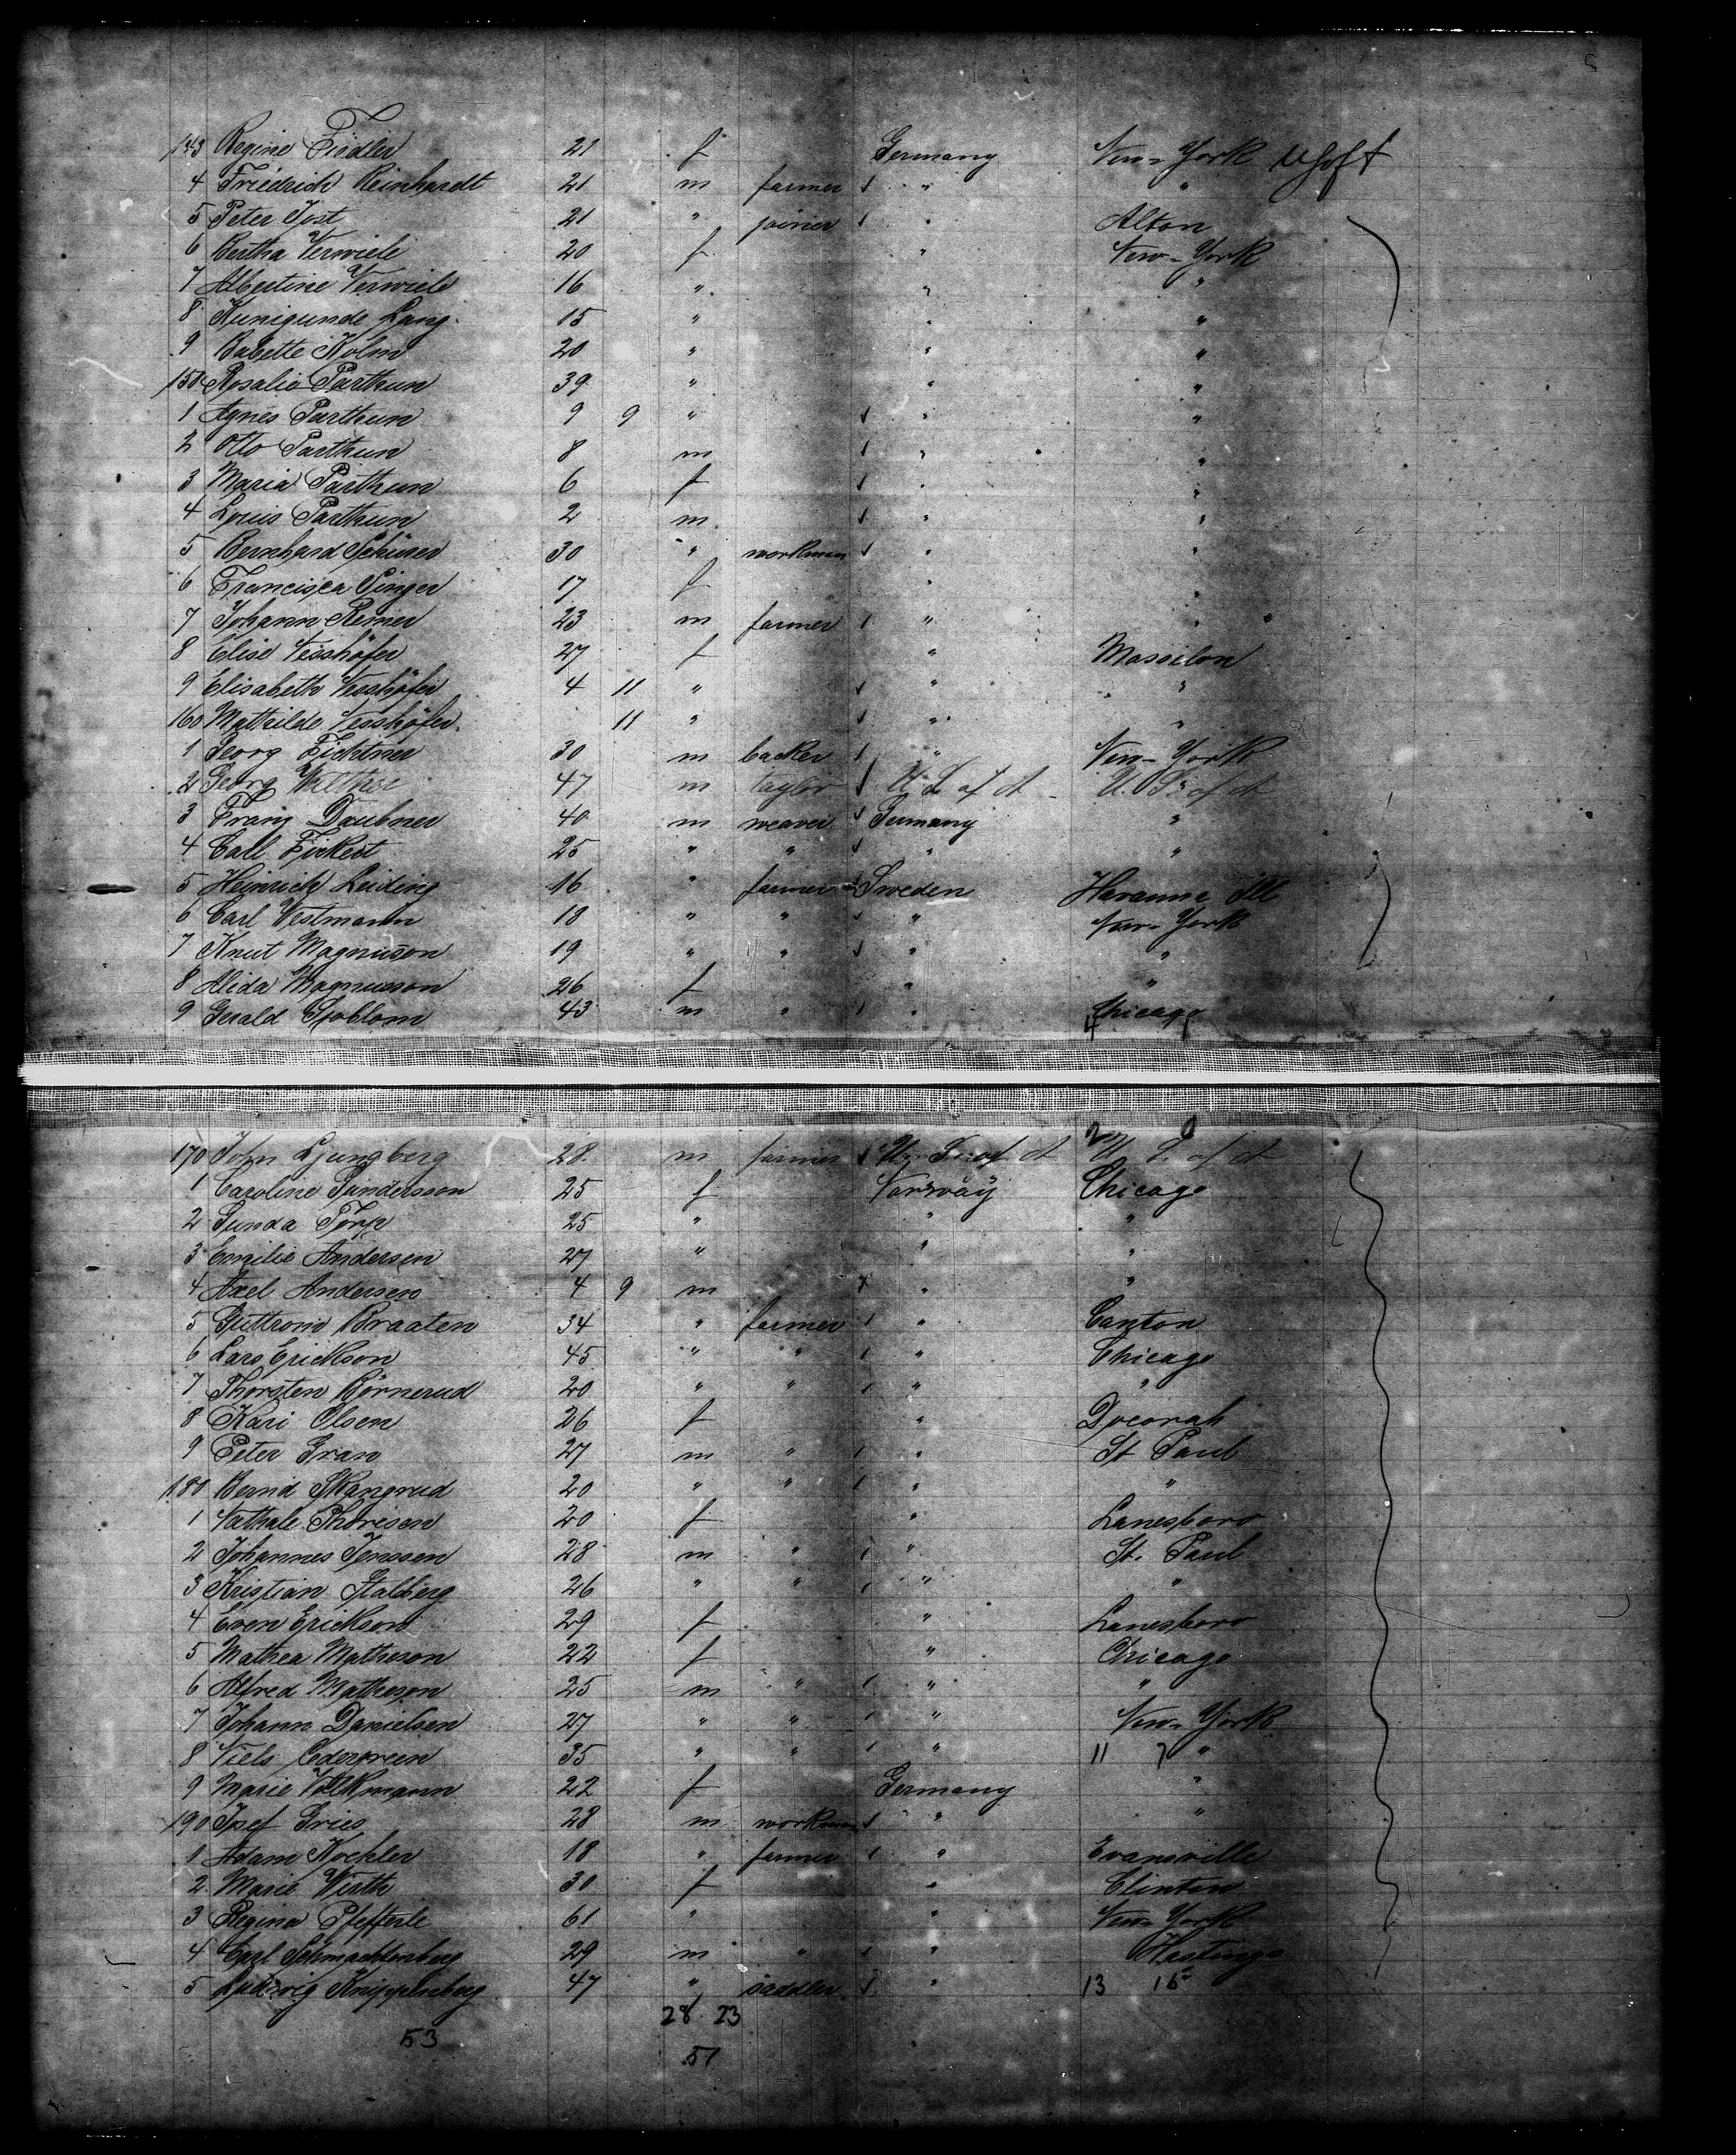 143 Regine Fiedler 21 f Germany New-York
4 Friedrich Reinhardt 21 m farmer " "
5 Peter Jost 21 " joiner " Alton
6 Bertha Verwiele 20 f " New-York
7 Albertine Verwiele 16 " " "
8 Kunigunde Lang. 15 " " "
9 Babette Kolm 20 " " "
150 Rosalie Parthun 39 " " "
1 Agnes Parthun 9 9 " " "
2 Otto Parthun 8 m " "
3 Maria Parthun 6 f " "
4 Louis Parthun 2 m " "
5 Bernhard Schürer 30 " workman " "
6 Francisca Singer 17 f " "
7 Johann Reiner 23 m farmer " "
8 Elise Vesshöfer 27 f " Massilon
9 Elisabeth Vesshöfer 4 11 " " "
160 Mathilde Vesshöfer. 11 " " "
1 Georg Fichtner 30 m backer " New-York
2 Georg Walther 47 m taylor U. S. of A U. S. of A
3 Franz Daubner 40 m weaver Germany "
4 Carl Fickert 25 " " " "
5 Heinrich Leiding 16 " farmer Sweden Havanna Ill
6 Carl Westmann 18 " " " New-York
7 Knut Magnusson 19 " " " "
8 Alida Magnusson 26 f " "
9 Gerald Sjoblom 43 m " " Chicago
170 John Ljungberg 28 m farmer U. S. of A U. S. of A
1 Caroline Gundersson 25 f Norway Chicago
2 Gunda Torp 25 " " "
3 Emilie Andersen 27 " " "
4 Axel Andersen 4 9 m " "
5 Guttrom Braaten 34 " farmer " Canton
6 Lars Erickson 45 " " " Chicago
7 Thorsten Börnerud 20 " " " "
8 Kari Olsen 26 f " Decorah
9 Peter Gran 27 m " " St Paul
180 Bernd Skangrud 20 " " " "
1 Nathale Thoresen 20 f " Lanesboro
2 Johannes Jenssen 28 m " " St. Paul
3 Kristian Stalberg 26 " " " "
4 Even Erickson 29 f " Lanesboro
5 Mathea Matheson 22 f " Chicago
6 Alfred Matheson 25 m " " "
7 Johann Danielsen 27 " " " New-York
8 Niels Edergreen 35 " " " 11 7 "
9 Marie Volkmann 22 f Germany "
190 Josef Gries 28 m workman " "
1 Adam Koehler 18 " farmer " Evansville
2 Marie Wirth 30 f " Clinton
3 Regina Pfefferle 61 " " New-York
4 Carl Schmachtenberg 29 m " " Hastings
5 Ludwig Knippenberg 47 " saddler " 13 15
28 23
53
51